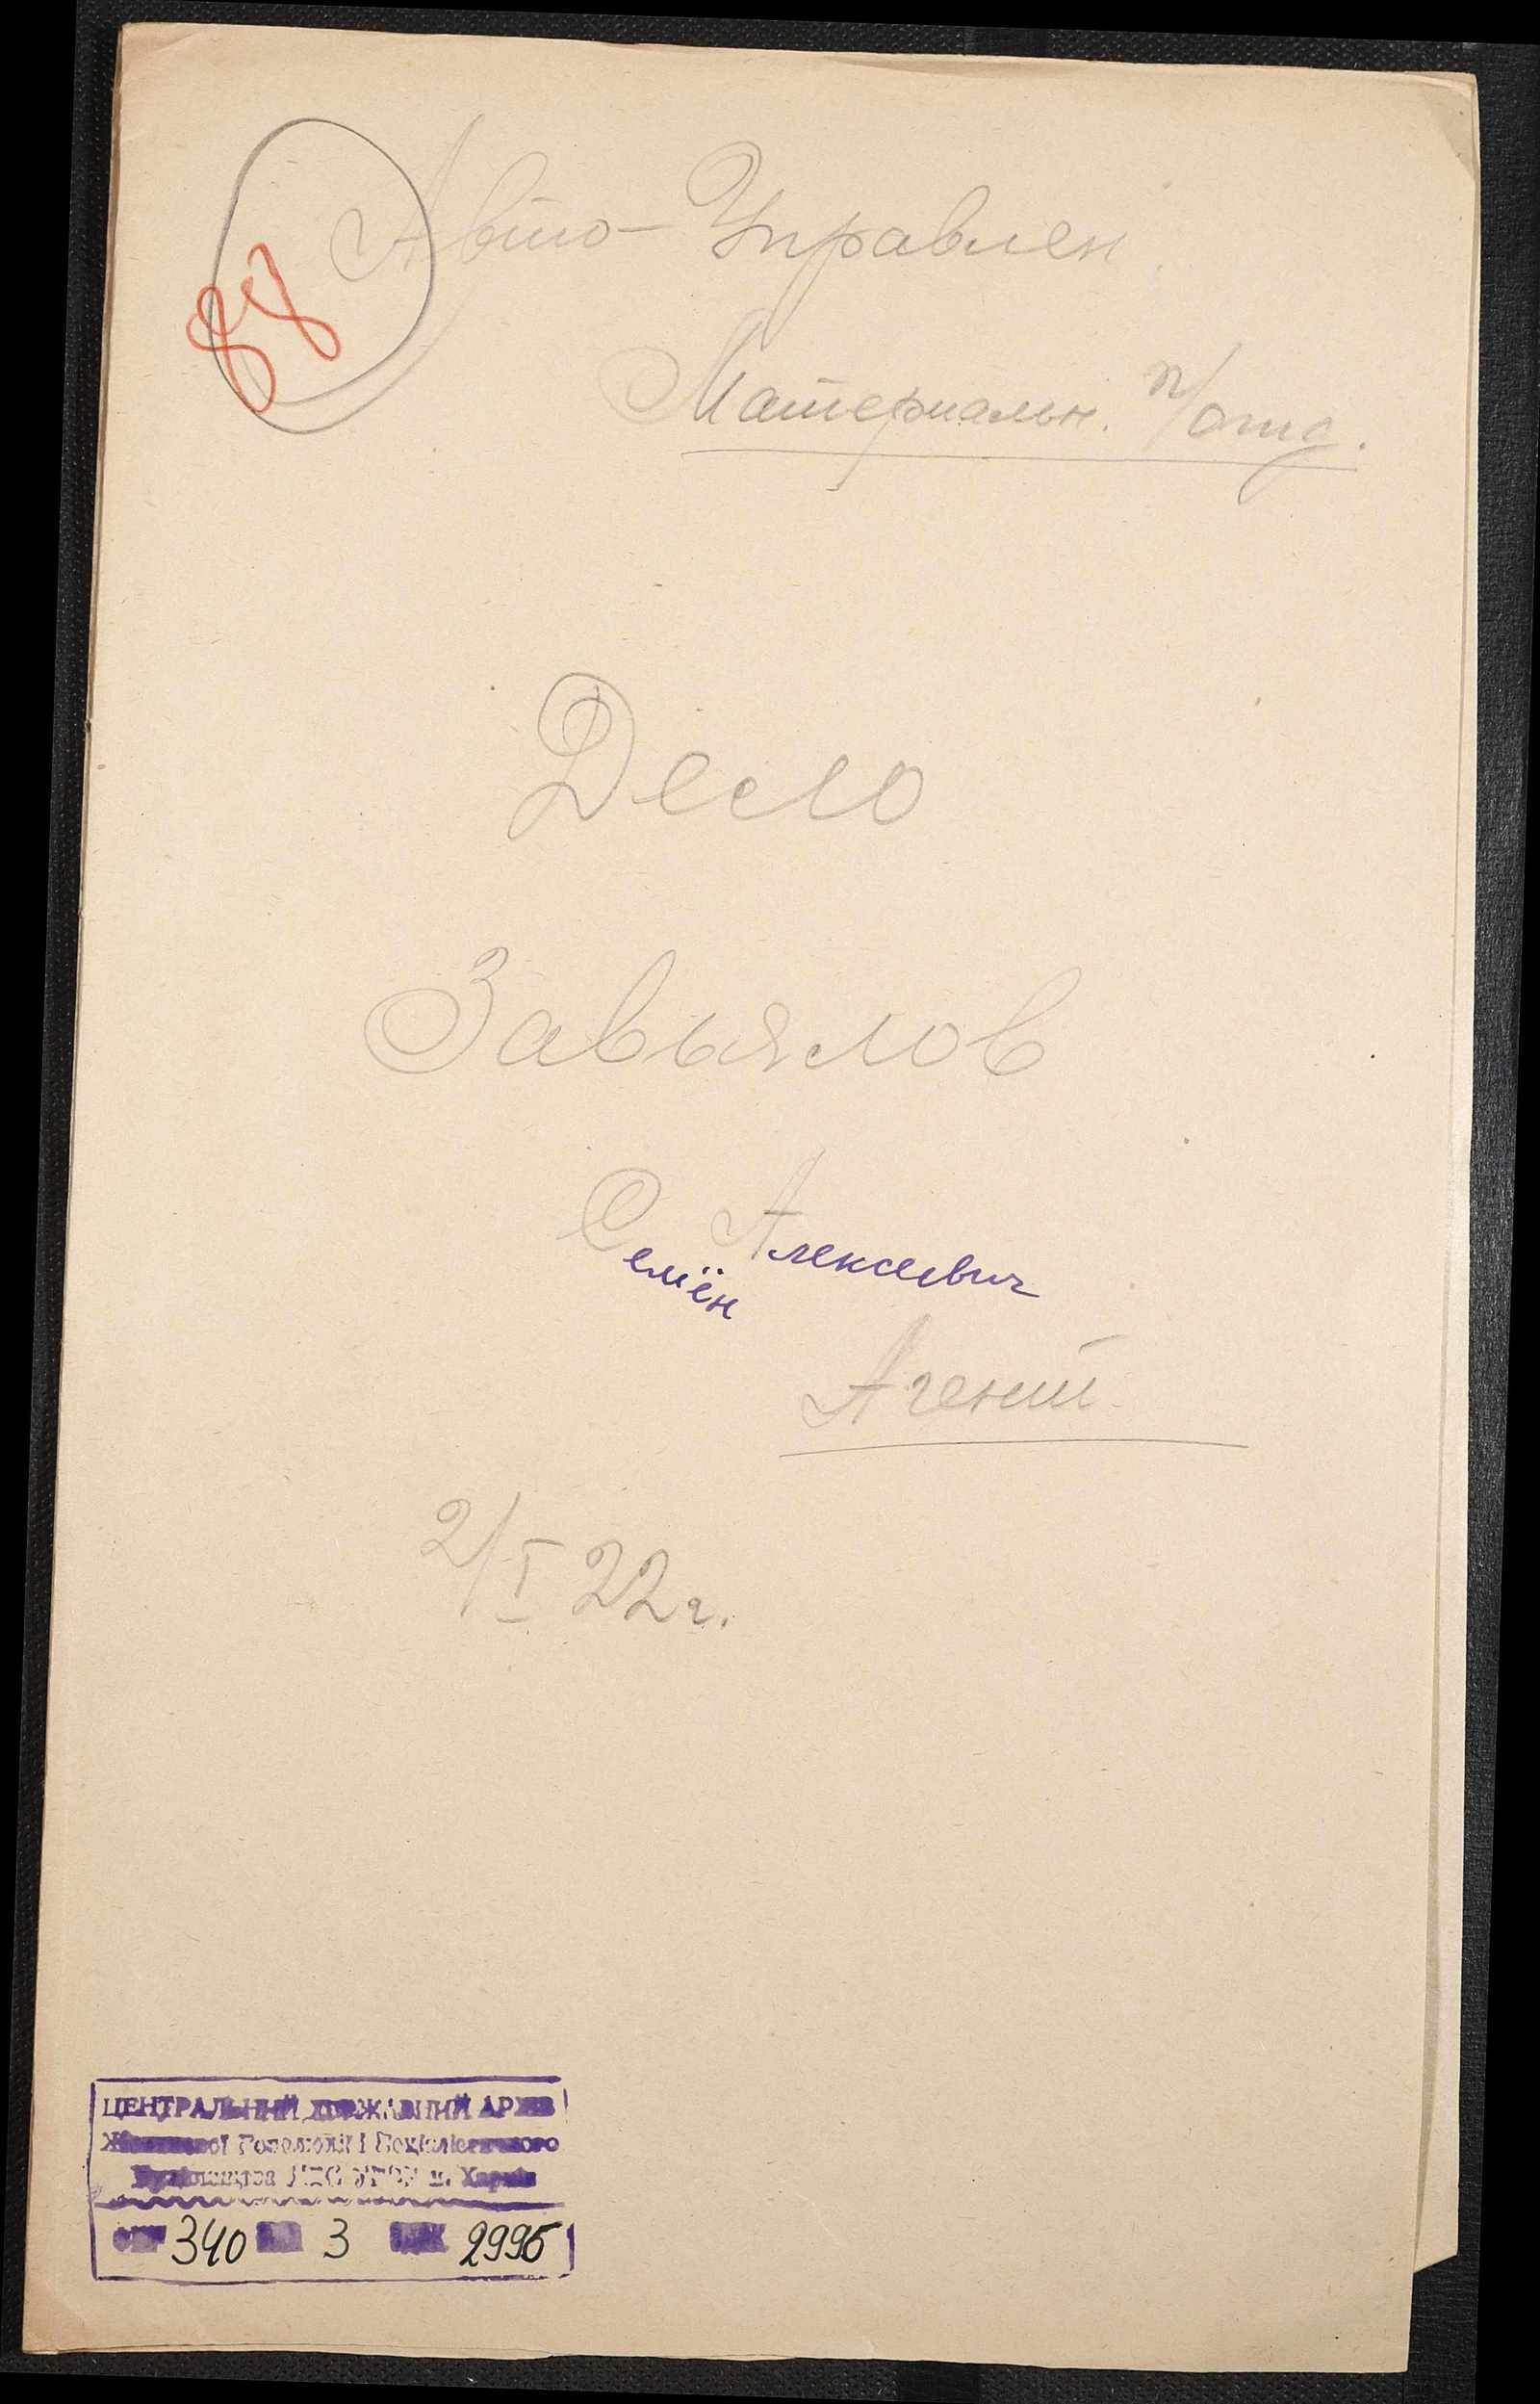 88
Авто-Управлен.
Материальн. п/отд.
Дело
Завьялов
Семён Алексеевич
Агент
2/I 22 г.
ЦЕНТРАЛЬНИЙ ДЕРЖАВНИЙ АРХІВ
Жовтневої Революції і Соціалістичного
Будівництва УРСР м. Харків
340 3 2995